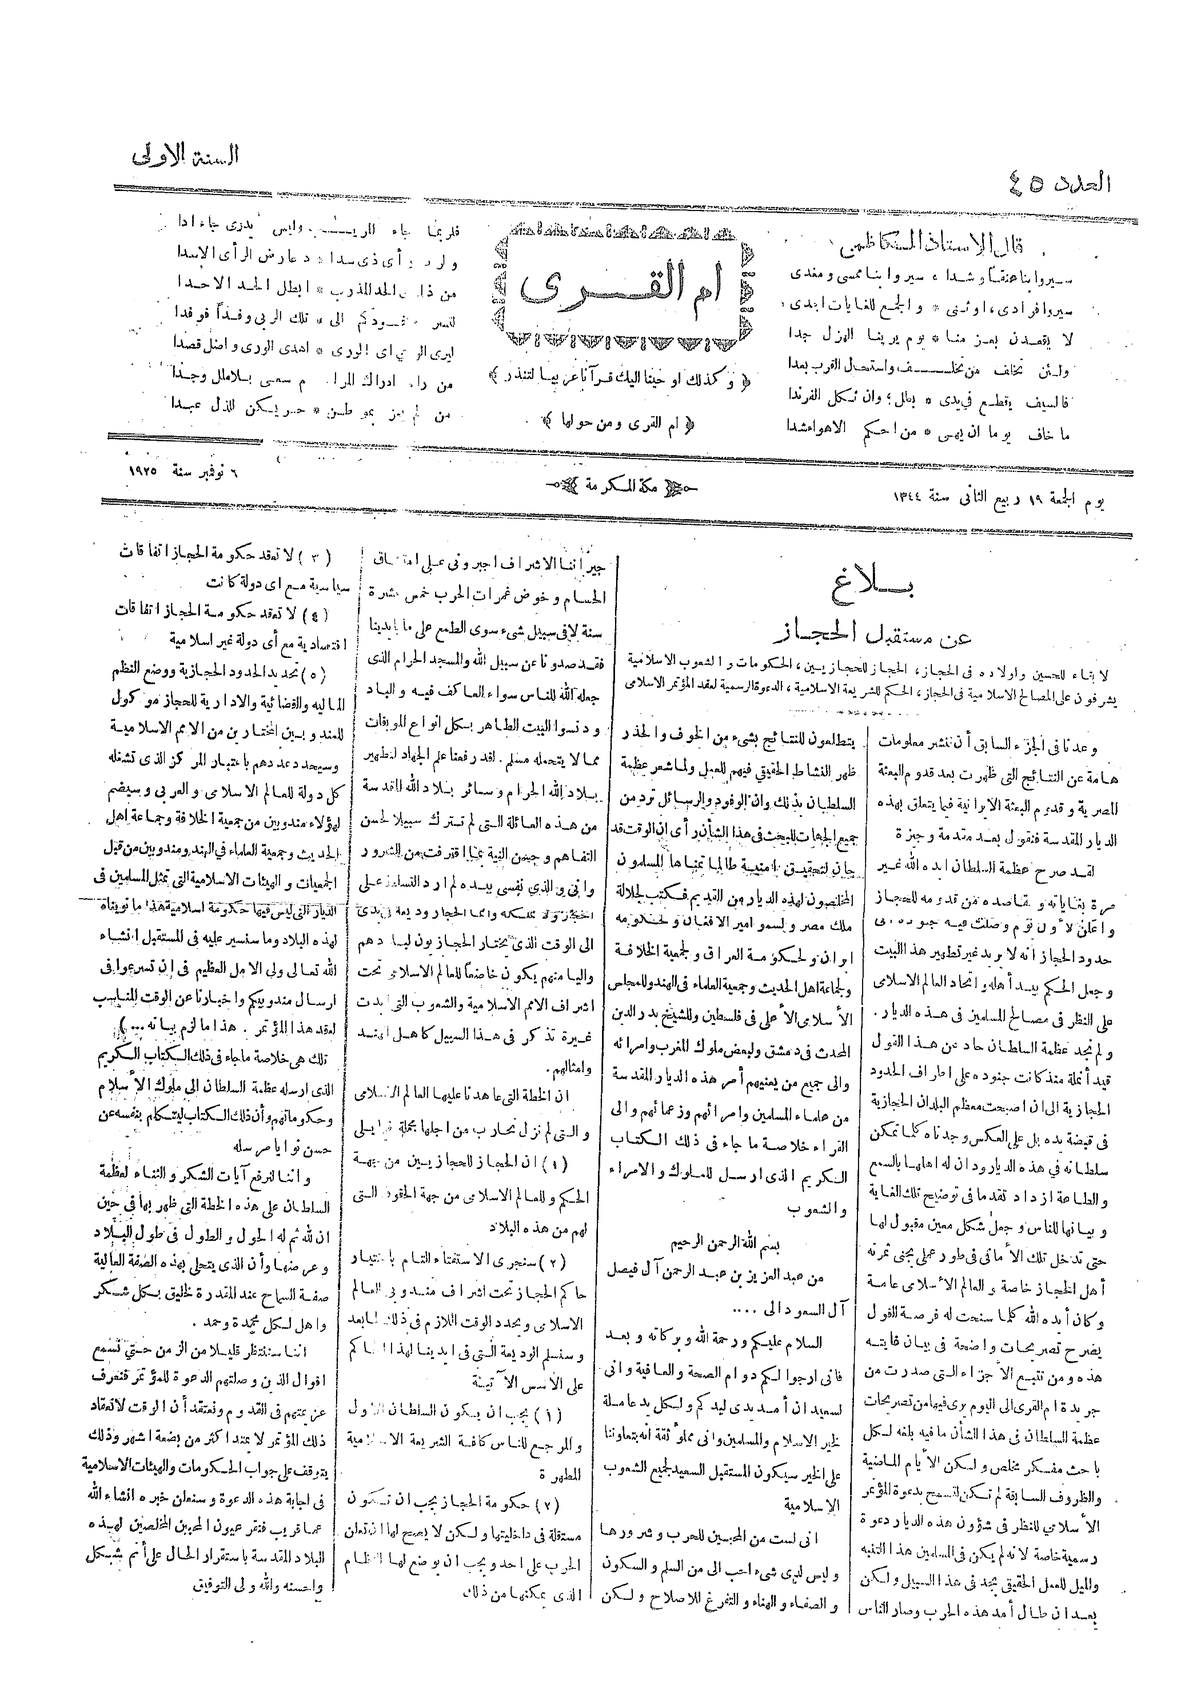 العدد ٤٥
السنة الاولى
قال الاستاذ الكاظمى
سيروا بنا عنقا وشدا ، سيروا بنا ممسى ومغدى
سيروا فرادى ، او ثنى * والجمع للغايات اجدى
لا يقعدن بعز منا * يوم يرينا الهزل جدا
ولئن تخلف من تخلف واستحال القرب بعدا
فالسيف يقطع فى يدى * بطل ؛ وان ثكل الفرندا
ما خاف يوما ان يهى * من احكم الاهواء شدا
ام القرى
﴿ وكذلك اوحينا اليك قرآنا عربيا لتنذر ﴾
﴿ ام القرى ومن حولها ﴾
فلربما جاء المريب وليس يدرى جاء ادا
ولرب رأى ذى سدا * د عارض الرأى الاسدا
ابطل الحد الاحدا
تلك الربى وفدا فوفدا
الورى * اهدى الورى واضل قصدا
من رام ادراك المرام سعى بلا ملل وجدا
من لم يعز بموطن * حر يكن للذل عبدا
يوم الجمعة ١٩ ربيع الثانى سنة ١٣٤٤
مكة المكرمة
٦ نوفمبر سنة ١٩٢٥
بلاغ
عن مستقبل الحجاز
لا بقاء للحسين واولاده فى الحجاز ، الحجاز للحجازيين ، الحكومات والشعوب الاسلامية
يشرفون على المصالح الاسلامية فى الحجاز ، الحكم للشريعة الاسلامية ، الدعوة الرسمية لعقد المؤتمر الاسلامى
وعدنا فى الجزء السابق أن ننشر معلومات
هامة عن النتائج التى ظهرت بعد قدوم البعثة
المصرية وقدوم البعثة الايرانية فيما يتعلق بهذه
الديار المقدسة فنقول بعد مقدمة وجيزة
لقد صرح عظمة السلطان ايده الله غير
مرة بغاياته ومقاصده من قدومه للحجاز
واعلن لاول يوم وصلت فيه جنوده الى
حدود الحجاز انه لا يريد غير تطهير هذا البيت
وجعل الحكم بيد أهله واتحاد العالم الاسلامى
على النظر فى مصالح المسلمين فى هذه الديار .
ولم نجد عظمة السلطان حاد عن هذا القول
قيد أنملة منذ كانت جنوده على اطراف الحدود
الحجازية الى ان اصبحت معظم البلدان الحجازية
فى قبضة يده بل على العكس وجدناه كلما تمكن
سلطانه فى هذه الديار ودان له اهلها بالسمع
والطاعة ازداد تقدما فى توضيح تلك الغاية
وبيانها للناس وجعل شكل معين مقبول لها
حتى تدخل تلك الأمانى فى طور عملى يجنى ثمرته
أهل الحجاز خاصة والعالم الأسلامى عامة
وكان أيده الله كلما سنحت له فرصة القول
يصرح تصريحات واضحة فى بيان غايته
هذه ومن تتبع الأجزاء التى صدرت من
جريدة ام القرى الى اليوم يرى فيها من تصريحات
عظمة السلطان فى هذا الشأن ما فيه بلغه لكل
باحث مفكر مخلص ولكن الأيام الماضية
والظروف السابقة لم تكن لتسمح بدعوة المؤتمر
الأسلامى للنظر فى شؤون هذه الديار دعوة
رسمية خاصة لانه لم يكن فى المسلمين هذا التنبه
والميل للعمل الحقيقى يجد فى هذا السبيل ولكن
بعد ان طال أمد هذه الحرب وصار الناس
يتطلعون للنتائج بشىء من الخوف والحذر
ظهر النشاط الحقيقى فيهم للعمل ولما شعر عظمة
السلطان بذلك وان الوفود والرسائل ترد من
جميع الجهات للبحث فى هذا الشأن رأى ان الوقت قد
حان لتحقيق امنية طالما تمناها المسلمون
المخلصون لهذه الديار من القديم فكتب لجلالة
ملك مصر ولسمو امير الافغان ولحكومة
ايران ولحكومة العراق ولجمعية الخلافة
ولجماعة اهل الحديث وجمعية العلماء فى الهند وللمجلس
الأسلامى الأعلى فى فلسطين وللشيخ بدر الدين
المحدث فى دمشق ولبعض ملوك المغرب وامرائه
والى جميع من يعنيهم أمر هذه الديار المقدسة
من علماء المسلمين وامرائهم وزعمائهم والى
القراء خلاصة ما جاء فى ذلك الكتاب
الكريم الذى ارسل للملوك والامراء
والشعوب
بسم الله الرحمن الرحيم
من عبد العزيز بن عبد الرحمن آل فيصل
آل السعود الى ....
السلام عليكم ورحمة الله وبركاته وبعد
فانى ارجو لكم دوام الصحة والعافية وانى
لسعيد ان أمد يدى ليدكم ولكل يد عاملة
لخير الاسلام والمسلمين وانى مملوء ثقة انه بتعاوننا
على الخير سيكون المستقبل السعيد لجميع الشعوب
الاسلامية
انى لست من المحبين للحرب وشرورها
وليس لدى شىء احب الى من السلم والسكون
والصفاء والهناء والتفرغ للاصلاح ولكن
جيراننا الاشراف اجبرونى على امتشاق
الحسام وخوض غمرات الحرب خمس عشرة
سنة لا فى سبيل شىء سوى الطمع على ما بايدينا
فقد صدونا عن سبيل الله والمسجد الحرام الذى
جعله الله للناس سواء العاكف فيه والباد
ودنسوا البيت الطاهر بكل انواع الموبقات
مما لا يتحمله مسلم . لقد رفعنا علم الجهاد لتطهير
بلاد الله الحرام وسائر بلاد الله المقدسة
من هذه العائلة التى لم تترك سبيلا لحسن
التفاهم وحسن النية عما اقترفت من الشرور
وانى والذى نفسى بيده لم ارد التسلط على
الحجاز ولا تملكه وانما الحجاز وديعة فى يدى
الى الوقت الذى يختار الحجازيون لبلادهم
واليا منهم يكون خاضعا للعالم الاسلامى تحت
اشراف الامم الاسلامية والشعوب التى ابدت
غيرة تذكر فى هذا السبيل كاهل الهند
وامثالهم .
ان الخطة التى عاهدنا عليها العالم الاسلامى
والتى لم نزل نحارب من اجلها مجملة فيما يلى
(١) ان الحجاز للحجازيين من جهة
الحكم وللعالم الاسلامى من جهة الحقوق التى
لهم من هذه البلاد
(٢) سنجرى الاستفتاء التام باختيار
حاكم الحجاز تحت اشراف مندوبى العالم
الاسلامى ويحدد الوقت اللازم فى ذلك فيما بعد
وسنسلم الوديعة التى فى ايدينا لهذا الحاكم
على الأسس الآتية
(١) يجب ان يكون السلطان الاول
والمرجع للناس كافة الشريعة الاسلامية
المطهرة
(٢) حكومة الحجاز يجب ان تكون
مستقلة فى داخليتها ولكن لا يصح لها ان تعلن
الحرب على احد ويجب ان يوضع لها النظام
الذى يمكنها من ذلك
(٣) لا تعقد حكومة الحجاز اتفاقات
سياسية مع اى دولة كانت
(٤) لا تعقد حكومة الحجاز اتفاقات
اقتصادية مع أى دولة غير اسلامية
(٥) تحديد الحدود الحجازية ووضع النظم
المالية والقضائية والادارية للحجاز موكول
للمندوبين المختارين من الامم الاسلامية
وسيحدد عددهم باعتبار المركز الذى تشغله
كل دولة للعالم الاسلامى والعربى وسيضم
لهؤلاء مندوبين من جمعية الخلافة وجماعة اهل
الحديث وجمعية العلماء فى الهند ومندوبين من قبل
الجمعيات والهيئات الاسلامية التى تمثل المسلمين فى
الديار التى ليس فيها حكومة اسلامية هذا ما نويناه
لهذه البلاد وما سنسير عليه فى المستقبل انشاء
الله تعالى ولى الامل العظيم فى ان تسرعوا فى
ارسال مندوبيكم واخبارنا عن الوقت المناسب
لعقد هذا المؤتمر . هذا ما لزم بيانه ... )
تلك هى خلاصة ما جاء فى ذلك الكتاب الكريم
الذى ارسله عظمة السلطان الى ملوك الأسلام
وحكوماتهم وأن ذلك الكتاب ليتكلم بنفسه عن
حسن نوايا مرسله
واننا لنرفع آيات الشكر والثناء لعظمة
السلطان على هذه الخطة التى ظهر بها فى حين
ان لله ثم له الحول والطول فى طول البلاد
وعرضها وأن الذى يتحلى بهذه الصفة العالية
صفة السماح عند المقدرة لخليق بكل شكر
واهل لكل محمدة وحمد .
اننا سننتظر قليلا من الزمن حتى نسمع
اقوال الذين وصلتهم الدعوة للمؤتمر فنعرف
عزيمتهم فى القدوم ونعتقد أن الوقت لانعقاد
ذلك المؤتمر لا يمتد اكثر من بضعة اشهر وذلك
يتوقف على جواب الحكومات والهيئات الاسلامية
فى اجابة هذه الدعوة وسنعلن خبره انشاء الله
عما قريب فتقر عيون المحبين المخلصين لهذه
البلاد المقدسة باستقرار الحال على أتم شكل
واحسنه والله ولى التوفيق